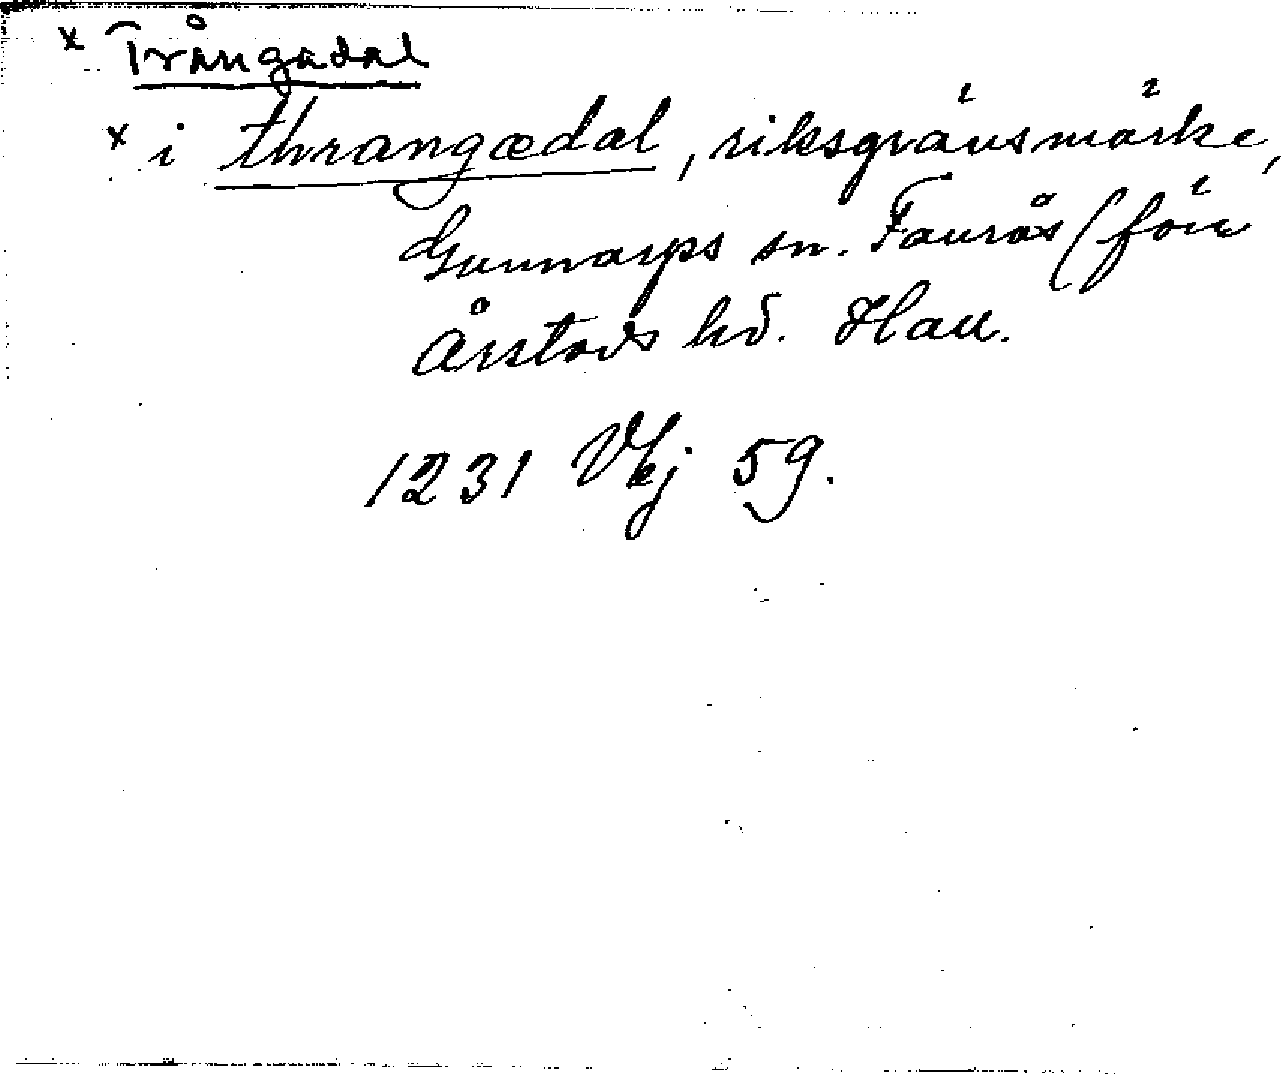 x Trångadal
x i thrangædal, riksgränsmärke,
Gunnarps sn. Faurås (förr
Årstads hd. Hall.
1231 Vkj 59.